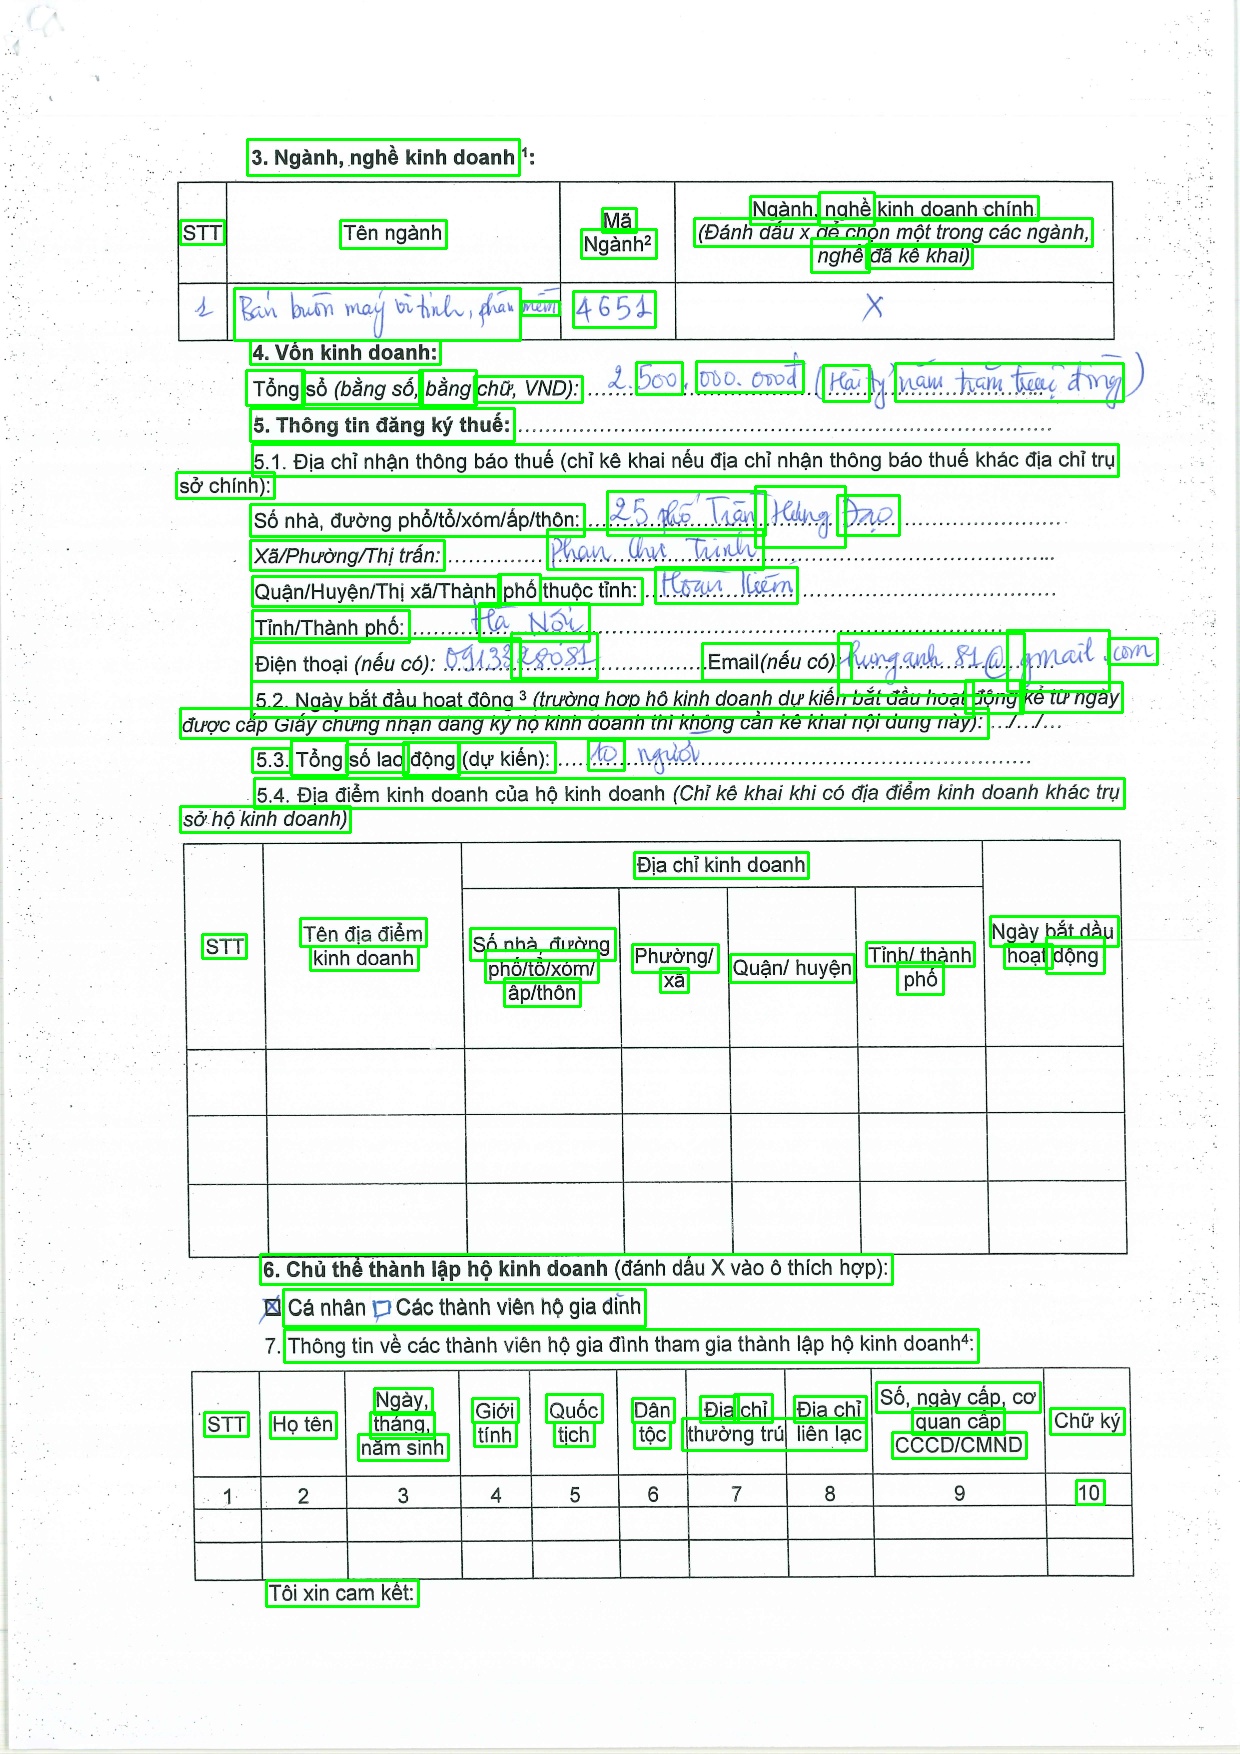 3. Ngành, nghề kinh doanh ¹:
STT
Tên ngành
Mã
Ngành²
Ngành, nghề kinh doanh chính
(Đánh dấu x để chọn một trong các ngành,
nghề đã kê khai)
1
Bán buôn máy vi tính, phần mềm
4651
X
4. Vốn kinh doanh:
Tổng số (bằng số, bằng chữ, VND): ..... 2.500.000.000đ (Hai tỷ năm trăm triệu đồng)
5. Thông tin đăng ký thuế:
5.1. Địa chỉ nhận thông báo thuế (chỉ kê khai nếu địa chỉ nhận thông báo thuế khác địa chỉ trụ
sở chính):
Số nhà, đường phố/tổ/xóm/ấp/thôn: 25 phố Trần Hưng Đạo
Xã/Phường/Thị trấn: Phan Chu Trinh
Quận/Huyện/Thị xã/Thành phố thuộc tỉnh: Hoàn Kiếm
Tỉnh/Thành phố: Hà Nội
Điện thoại (nếu có): 0913328081 Email(nếu có) hunganh81@gmail.com
5.2. Ngày bắt đầu hoạt động ³ (trường hợp hộ kinh doanh dự kiến bắt đầu hoạt động kể từ ngày
được cấp Giấy chứng nhận đăng ký hộ kinh doanh thì không cần kê khai nội dung này): .../.../...
5.3. Tổng số lao động (dự kiến): 10 người
5.4. Địa điểm kinh doanh của hộ kinh doanh (Chỉ kê khai khi có địa điểm kinh doanh khác trụ
sở hộ kinh doanh)
STT
Tên địa điểm
kinh doanh
Địa chỉ kinh doanh
Số nhà, đường
phố/tổ/xóm/
ấp/thôn
Phường/
xã
Quận/ huyện
Tỉnh/ thành
phố
Ngày bắt đầu
hoạt động
6. Chủ thể thành lập hộ kinh doanh (đánh dấu X vào ô thích hợp):
☒ Cá nhân ☐ Các thành viên hộ gia đình
7. Thông tin về các thành viên hộ gia đình tham gia thành lập hộ kinh doanh⁴:
STT
Họ tên
Ngày,
tháng,
năm sinh
Giới
tính
Quốc
tịch
Dân
tộc
Địa chỉ
thường trú
Địa chỉ
liên lạc
Số, ngày cấp, cơ
quan cấp
CCCD/CMND
Chữ ký
1 2 3 4 5 6 7 8 9 10
Tôi xin cam kết: